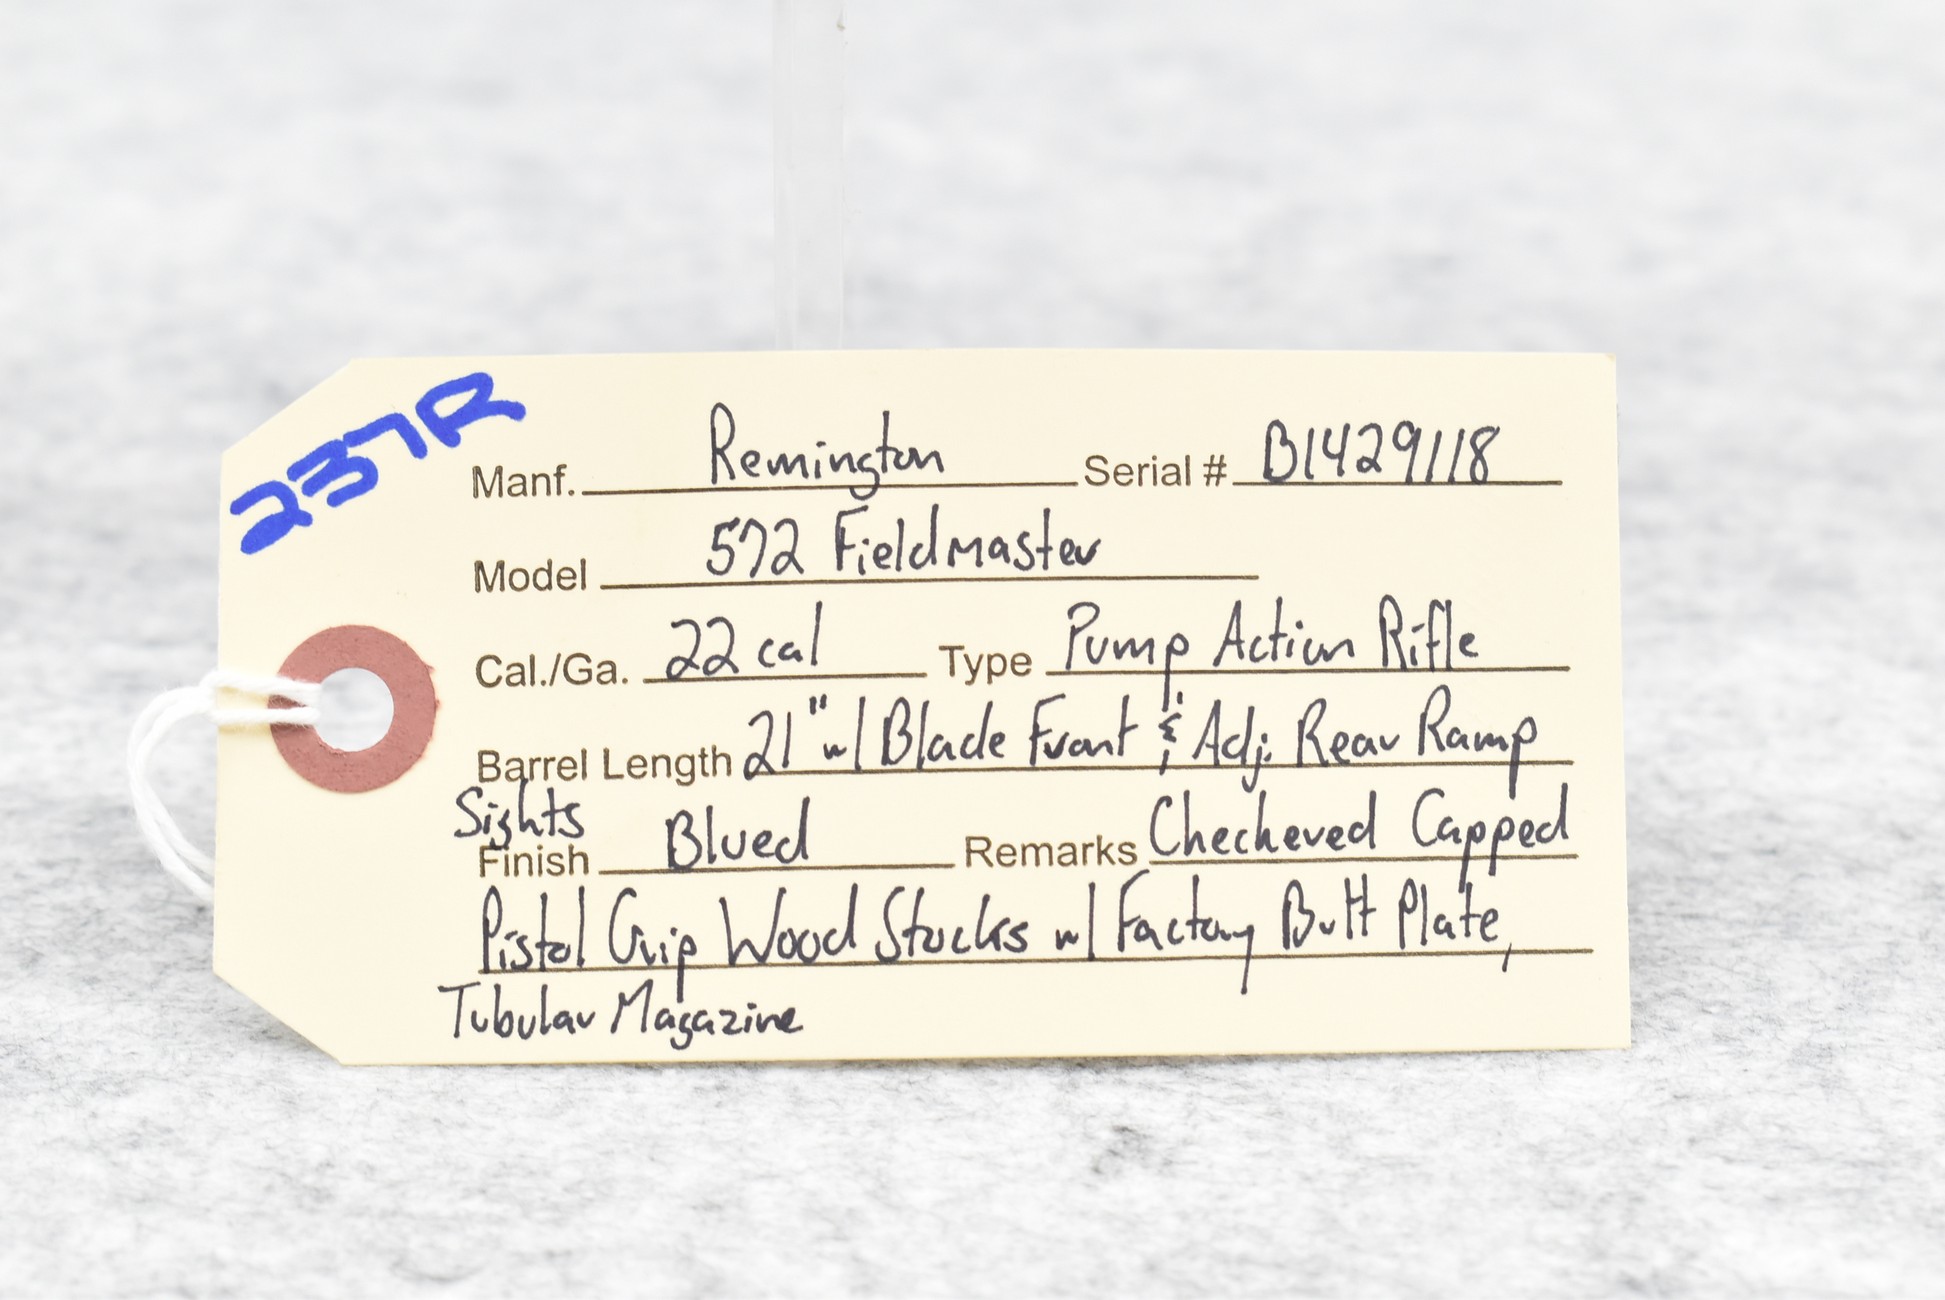 237R
Manf. Remington Serial # B1429118
Model 572 Fieldmaster
Cal./Ga. 22 cal Type Pump Action Rifle
Barrel Length 21" w/ Blade Front & Adj. Rear Ramp
Sights
Finish Blued Remarks Checkered Capped
Pistol Grip Wood Stocks w/ Factory Butt Plate,
Tubular Magazine